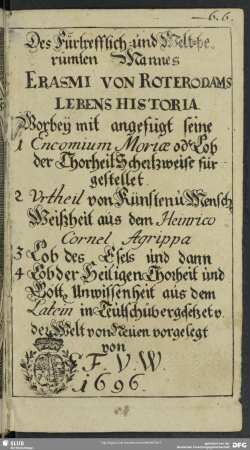 6.6.
Des Fürtrefflich-und Welt-be
rümten Mannes
ERASMI VON ROTERODAMS
LEBENS HISTORIA.
Worbey mit angefügt seine
1 Encomium Moriæ odr Lob
der Thorheit Schertzweise für-
gestellet
2 Urtheil von Künsten u Mensch
Weißheit aus dem Heinrico
Cornel Agrippa
3 Lob des Esels und dann
4 Lob der Heiligen Thorheit und
Gott Unwissenheit aus dem
Latein in Teütsch übergesetzt v
der Welt von Neuen vorgelegt
von
F. V. W.
1696.
SLUB